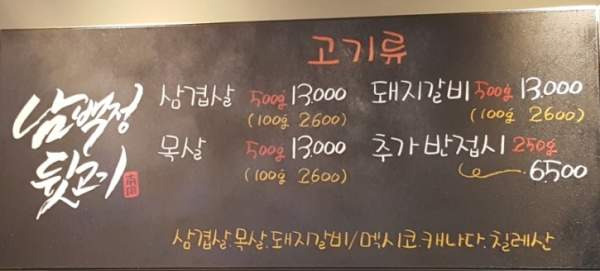 고기류
남백정
뒷고기
삼겹살 500g 13,000
(100g 2600)
목살 500g 13,000
(100g 2600)
돼지갈비 500g 13,000
(100g 2600)
추가반접시 250g
6500
삼겹살.목살.돼지갈비/멕시코.캐나다.칠레산